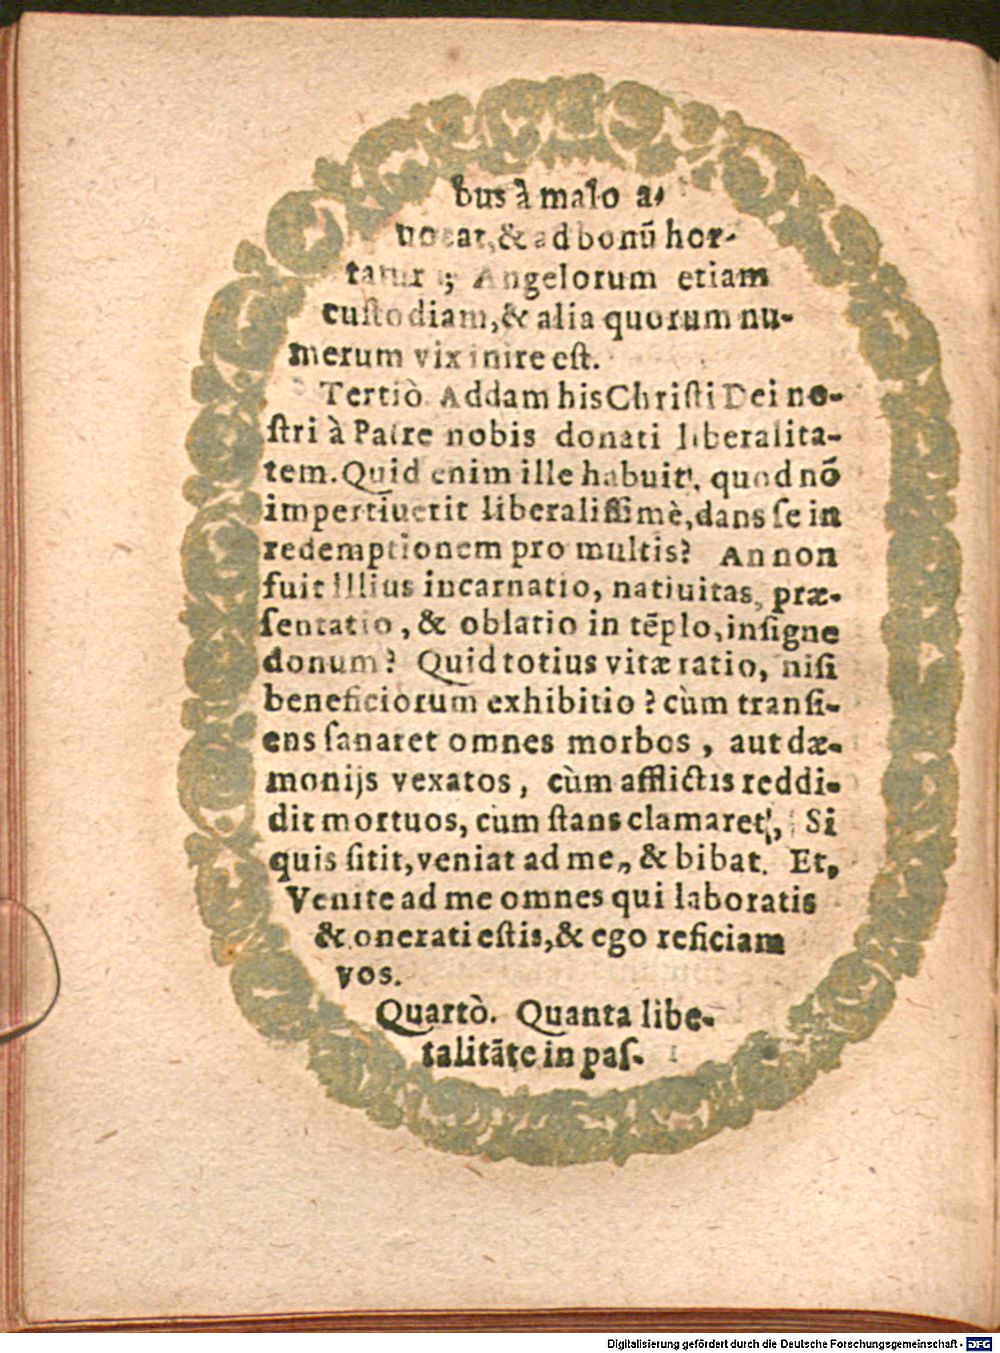 bus à malo a-
uocat, & ad bonū hor-
tatur ; Angelorum etiam
cuſtodiam, & alia quorum nu-
merum vix inire eſt.
Tertiò. Addam his Chriſti Dei no-
ſtri à Patre nobis donati liberalita-
tem. Quid enim ille habuit, quod nō
impertiuerit liberaliſſimè, dans ſe in
redemptionem pro multis? An non
fuit illius incarnatio, natiuitas, præ-
ſentatio, & oblatio in tēplo, inſigne
donum? Quid totius vitæ ratio, niſi
beneficiorum exhibitio? cùm tranſi-
ens ſanaret omnes morbos, aut dæ-
monijs vexatos, cùm afflictis reddi-
dit mortuos, cum ſtans clamaret, Si
quis ſitit, veniat ad me, & bibat. Et,
Venite ad me omnes qui laboratis
& onerati eſtis, & ego reficiam
vos.
Quartò. Quanta libe-
talitāte in paſ-
Digitalisierung gefördert durch die Deutsche Forschungsgemeinschaft - DFG